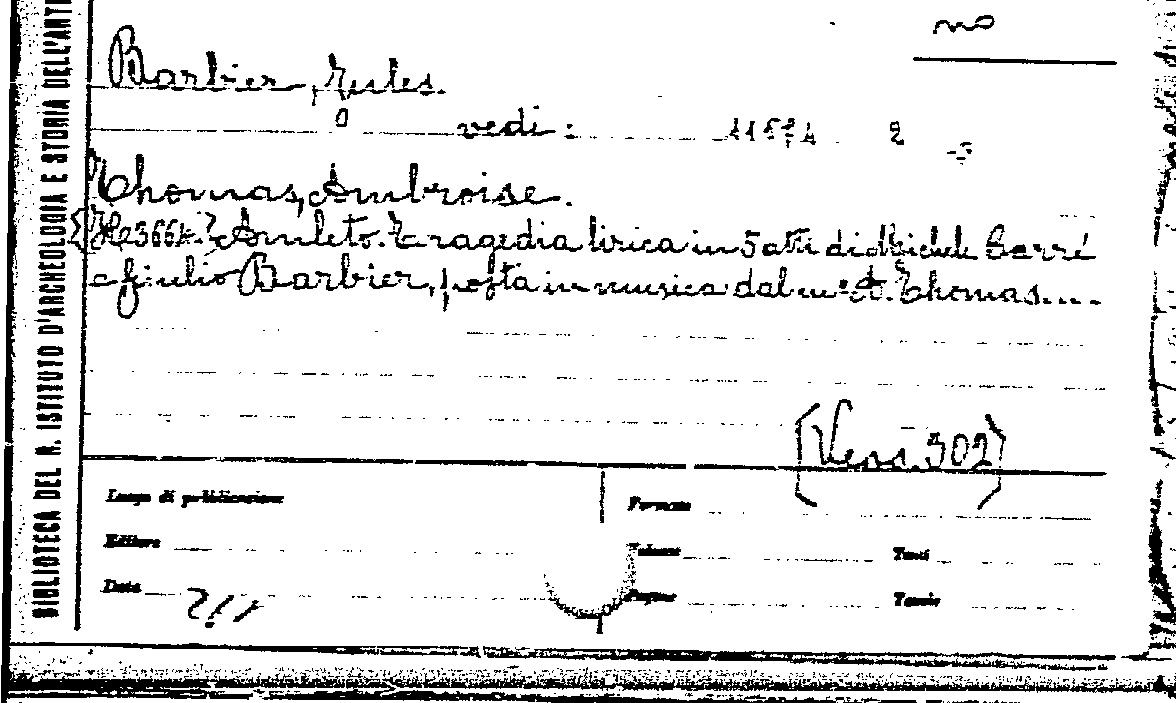 no
Barbier, Jules.
vedi:
Thomas, Ambroise.
Amleto. Tragedia lirica in 5 atti di Michele Carré
e Giulio Barbier, posta in musica dal m° A. Thomas....
302
Luogo di pubblicazione
Formato
Editore
Volume
Tomi
Data
Pagine
Tavole
BIBLIOTECA DEL R. ISTITUTO D'ARCHEOLOGIA E STORIA DELL'ARTE